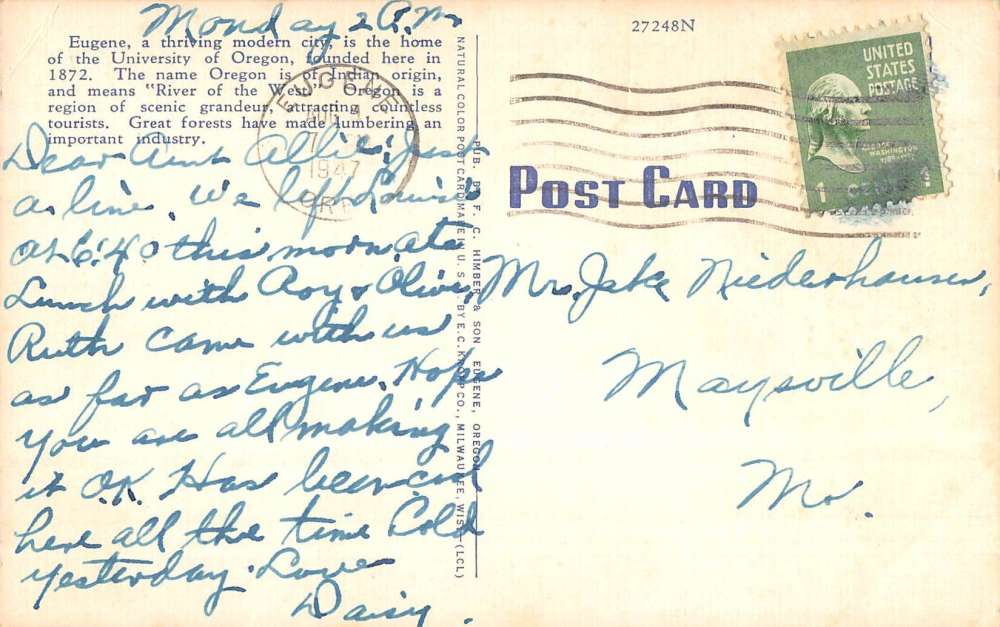 Monday 2 P.M.
27248N
Eugene, a thriving modern city, is the home
of the University of Oregon, founded here in
1872. The name Oregon is of Indian origin,
and means "River of the West." Oregon is a
region of scenic grandeur, attracting countless
tourists. Great forests have made lumbering an
important industry.
EUGENE
1947
UNITED
STATES
POSTAGE
GEORGE
WASHINGTON
POST CARD
Dear Aunt Allie; Just
a line. We left Louise
at 6:40 this morn. ate
Lunch with Roy & Olive,
Ruth came with us
as far as Eugene. Hope
you are all making
it O.K. Has been cool
here all the time Cold
yesterday. Love
Daisy.
NATURAL COLOR POST CARD MADE IN U. S. A. BY E. C. KROPP CO., MILWAUKEE, WIS. (LCL)
PUB. BY F. C. HIMBER & SON EUGENE, OREGON
Mr. Jake Niederhauser,
Maysville,
Mo.